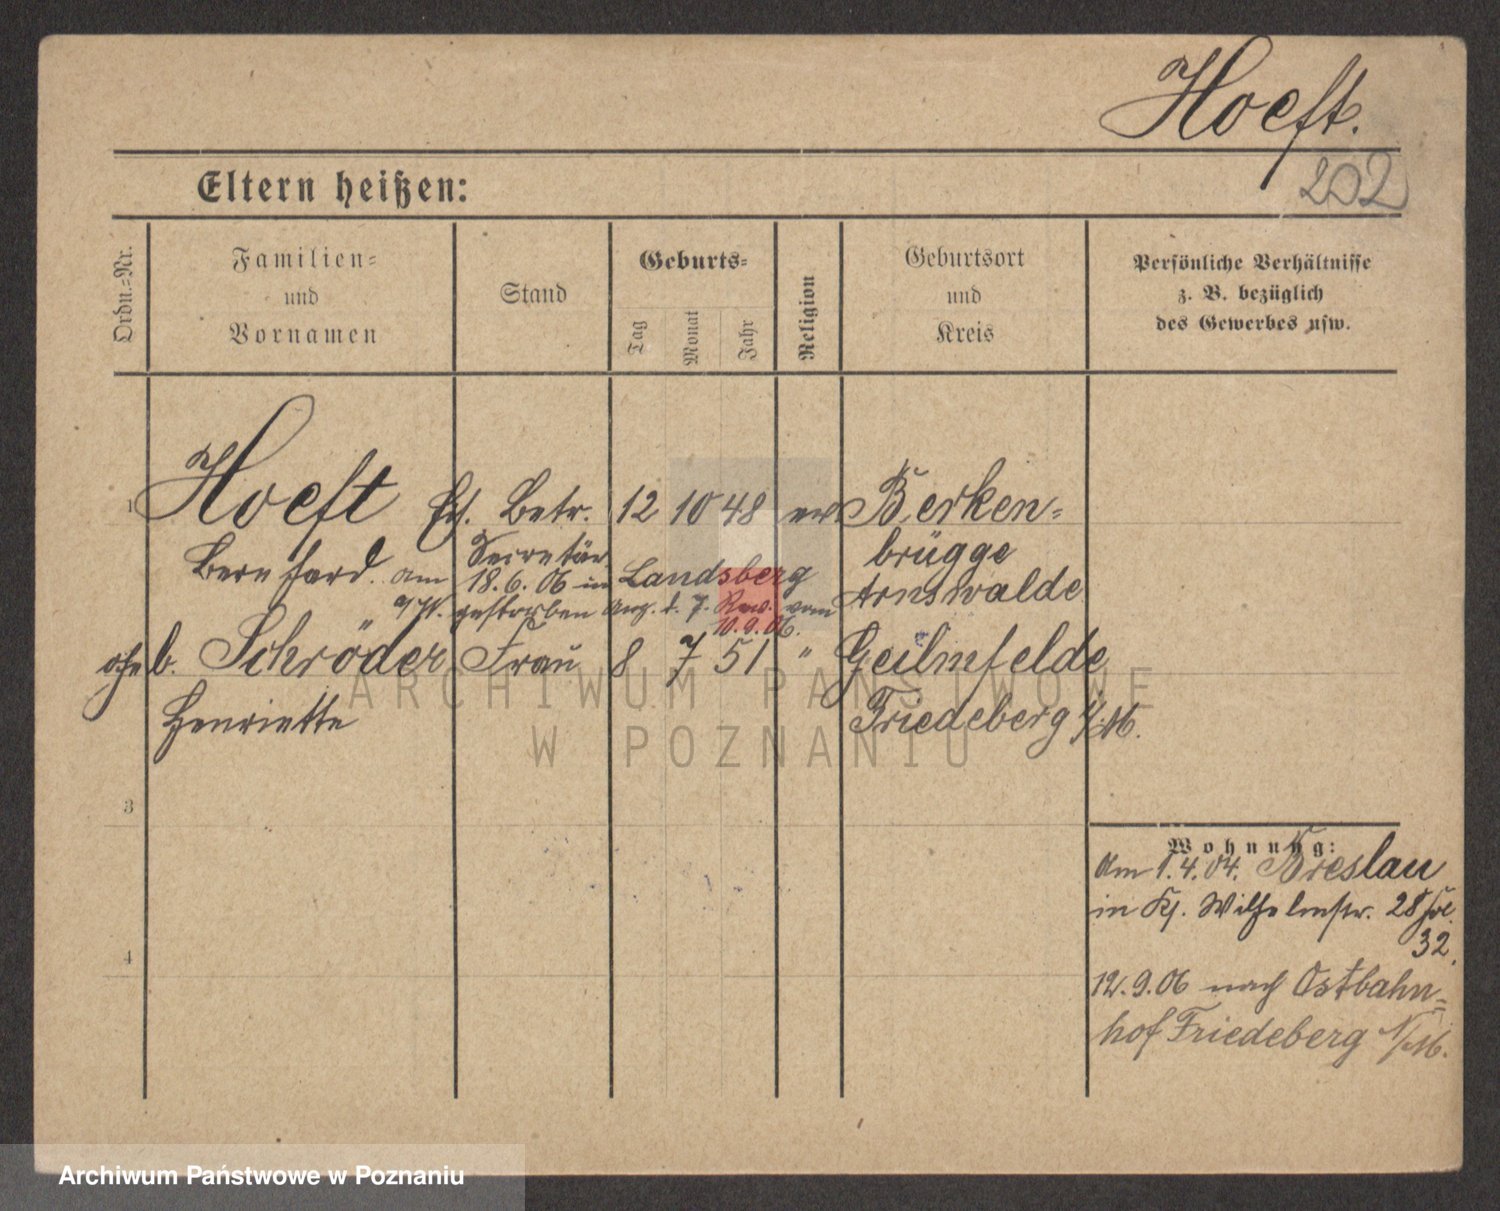 Hoeft.
202
Eltern heißen:
Ordn.-Nr.
Familien-
und
Vornamen
Stand
Geburts-
Tag
Monat
Jahr
Religion
Geburtsort
und
Kreis
Persönliche Verhältnisse
z. B. bezüglich
des Gewerbes usw.
1 Hoeft Betr. 12 10 48 ev Berken-
Secretär brügge
Bernhard. am 18.6.06 in Landsberg Arnswalde
a/W. gestorben Anz. d. 7. Rev. vom
10.9.06.
b. Schröder Frau 8 7 51 " Geilmfelde
Henriette Friedeberg N/M.
3
4
Wohnung:
Am 1.4.04. Breslau
in Wilhelmstr. 28
32.
12.9.06 nach Ostbahn-
hof Friedeberg N/M.
ARCHIWUM PAŃSTWOWE
W POZNANIU
Archiwum Państwowe w Poznaniu